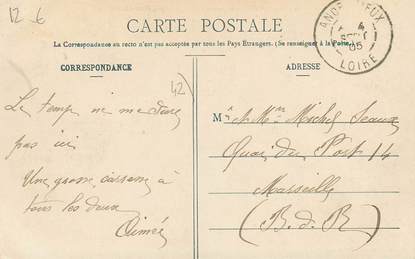 12 6
CARTE POSTALE
La Correspondance au recto n'est pas acceptée par tous les Pays Étrangers. (Se renseigner à la Poste).
CORRESPONDANCE
ADRESSE
42
4
05
LOIRE
Le temps ne me dure
pas ici
Une grosse caresse à
tous les deux
Aimée
Mr et Mme Michel
Quai du Port 14
Marseille
(B. d. R)